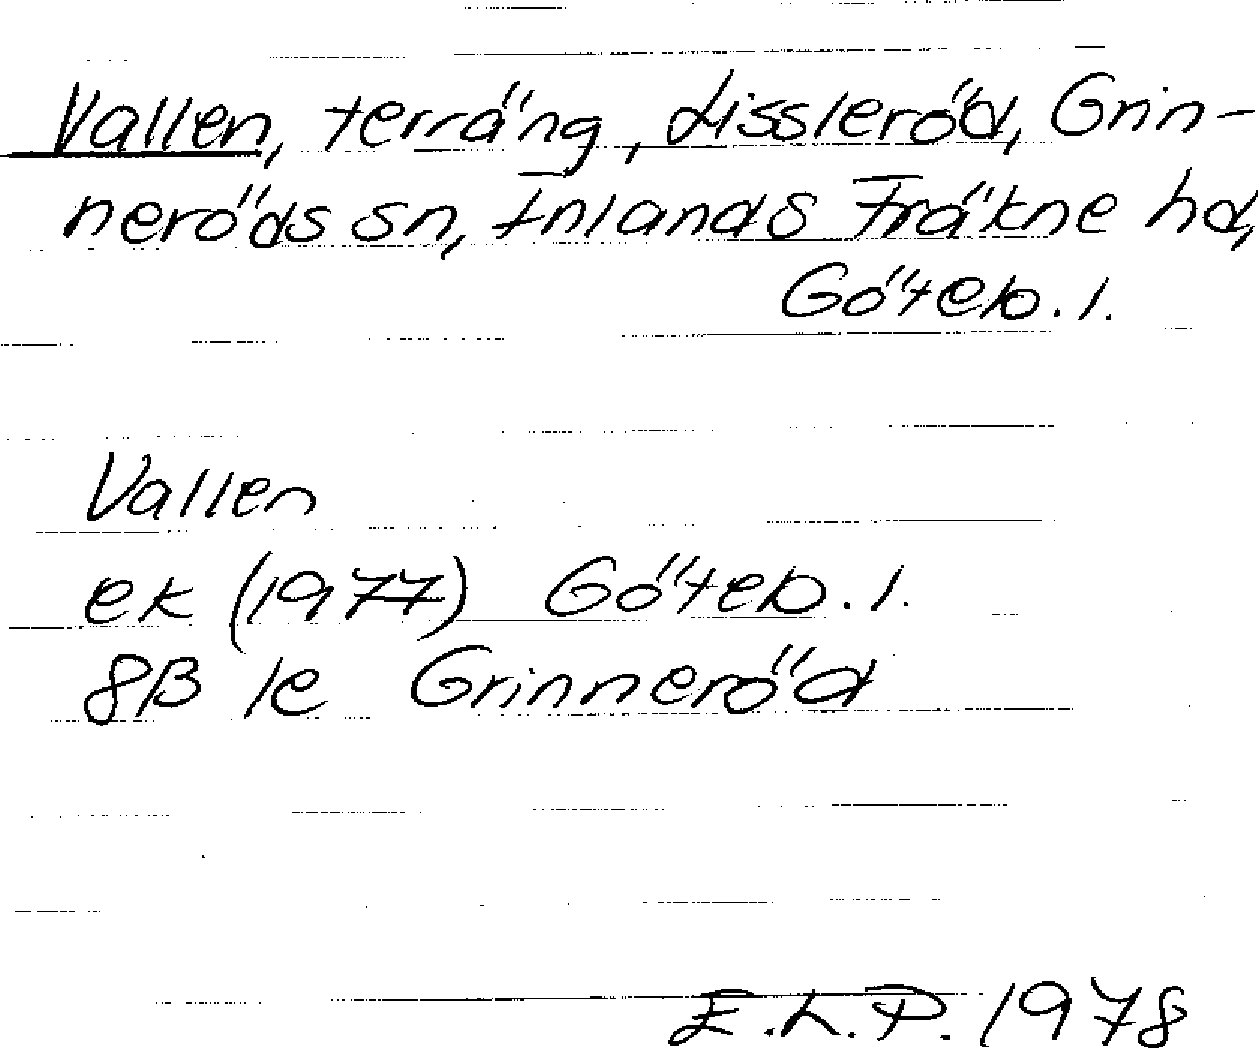 Vallen, terräng, Lissleröd, Grin-
neröds sn, Inlands Fräkne hd,
Göteb. l.
Vallen
ek (1977) Göteb. l.
8B 1e Grinneröd
E.L.P. 1978